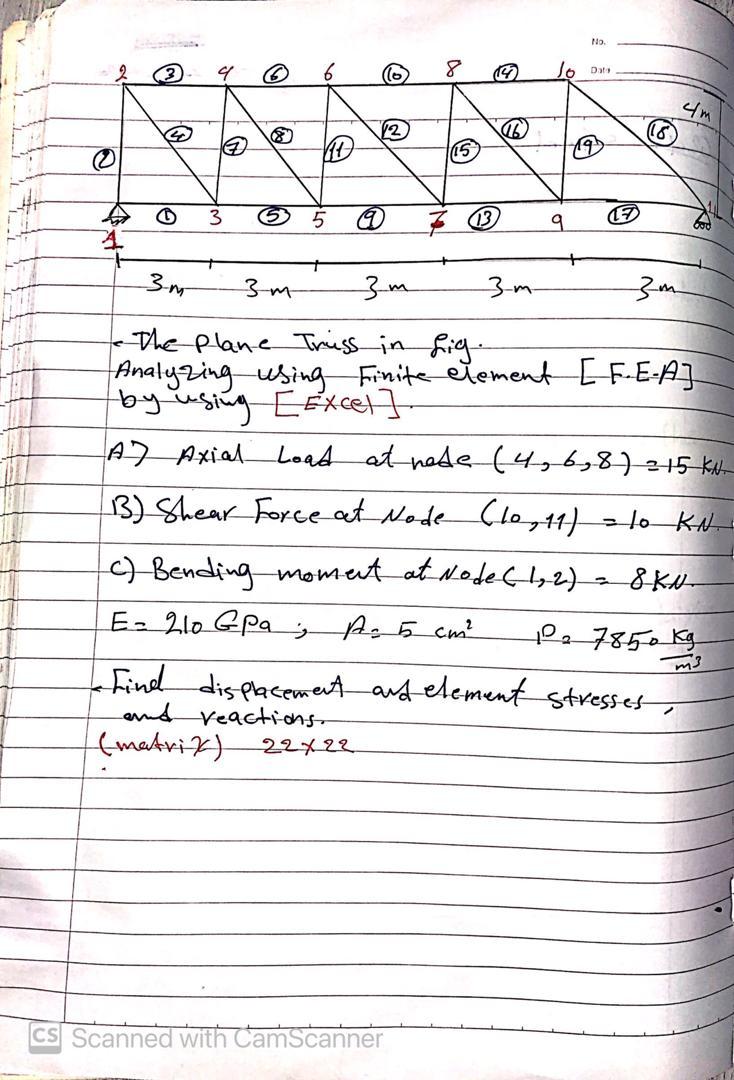 No.
Date
2 ③ 4 ⑥ 6 ⑩ 8 ⑭ 10
4m
④ ⑧ ⑫ ⑯ ⑱
② ⑦ ⑪ ⑮ ⑲
1 ① 3 ⑤ 5 ⑨ 7 ⑬ 9 ⑰ 11
3m 3m 3m 3m 3m
- The plane Truss in fig.
Analyzing using Finite element [F.E-A]
by using [Excel].
A) Axial Load at node (4, 6, 8) = 15 KN.
B) Shear Force at Node (10, 11) = 10 KN.
C) Bending moment at Node (1, 2) = 8 KN.
E = 210 GPa ; A = 5 cm² ρ = 7850 Kg/m³
- Find displacement and element stresses,
and reactions.
(matrix) 22x22
CS Scanned with CamScanner